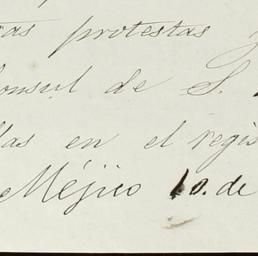 ras protestas
Consul de S.
las en el regis
Méjico 10. de